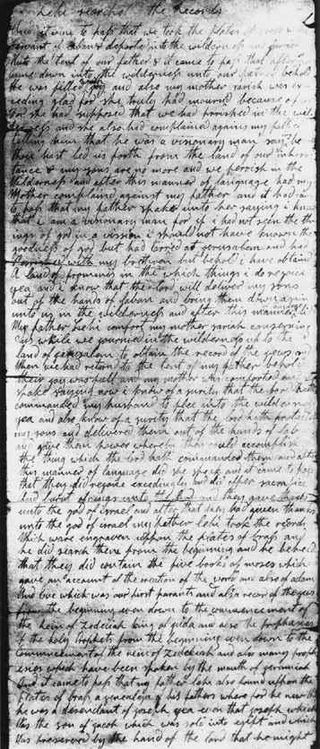 Lehi searched the Records
And it came to pass that we took the plates of
servant of Laban & departed into the wilderness & journied
unto the tent of our father & it came to pass that after we
came down into the wilderness unto our father behold
he was filled with joy and also my mother sariah was ex
ceding glad for she truly had mourned because of
for she had supposed that we had perished in the wil
derness and she also had complained against my father
telling him that he was a visionary man saying be
hold thou hast led us forth from the land of our inheri
tance & my sons are no more and we perrish in the
wilderness and after this manner of language had my
Mother complained against my father and it had
to pass that my father spake unto her saying I know
that I am a visionary man for if I had not seen the thi
ngs of god in a vision I should not have known the
goodness of god but had tarried at jerusalem and had
perrished with my brethren but behold I have obtaind
a land of promise in the which things I do rejoice
yea and I know that the Lord will deliver my sons
out of the hands of laban and bring them down again
unto us in the wilderness and after this manner
My father Lehi comfort my mother sariah concerning
us while we journied in the wilderness up to the
land of jerusalem to obtain the record of the jews &
when we had returnd to the tent of my father behold
their joy was full and my mother was comforted and
spake saying now I know of a surity that the Lord hath
commanded my husband to flee into the wilderness
yea and I also know of a surity that the Lord hath protected
my sons and delivered them out of the hands of Lab
an & gave them power whereby they could accomplish
the thing which the Lord hath commanded them and after
this manner of language did she speak and it came to pass
that they did rejoice excedingly and did offer sacrifice
and burnt offerings unto the Lord and they gave thanks
unto the god of israel and after that they had given thanks
unto the god of israel my father Lehi took the records
which were engraven uppon the plates of brass and
he did search them from the beginning and he beheld
that they did contain the five books of moses which
gave an account of the creation of the world and also of adam
and Eve which was our first parents and also a record of the jews
from the beginning even down to the commencement of
the reign of Zedekiah king of judah and also the prophesies
of the holy prophets from the beginning even down to the
commencement of the reign of Zedekiah and also many proph
esies which have been spoken by the mouth of jeremiah
And it came to pass that my father Lehi also found uppon the
plates of brass a genealogy of his fathers wherefore he knew that
he was a desendant of joseph yea even that joseph which
was the son of jacob which was sold into egypt and which
was preserved by the hand of the lord that he might